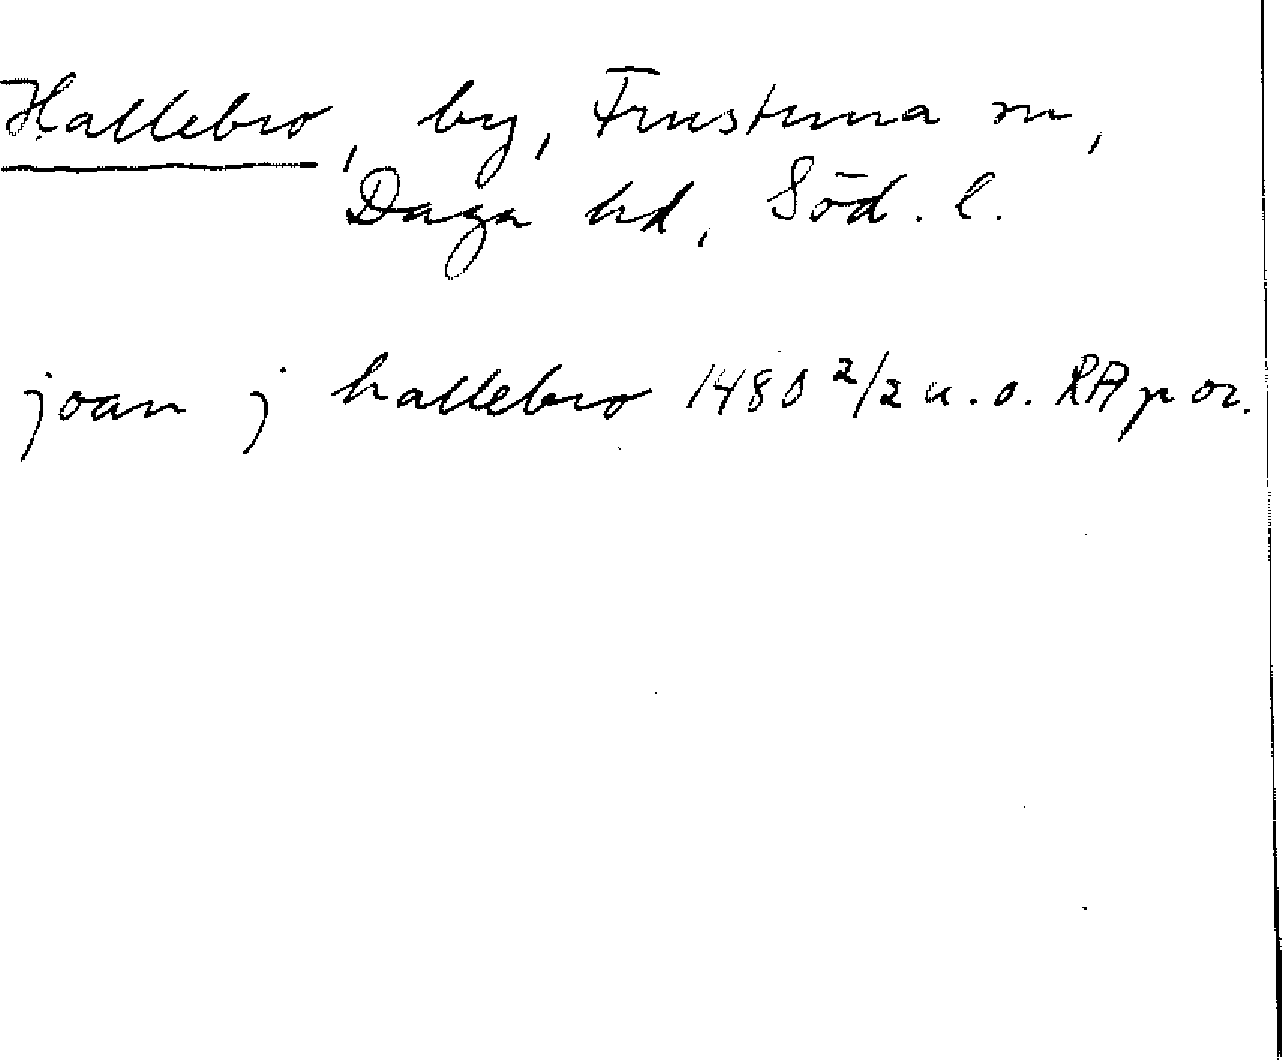 Hallebro, by, Frustuna sn,
Daga hd, Söd. l.
joan j hallebro 1480 2/2 u. o. RAp or.